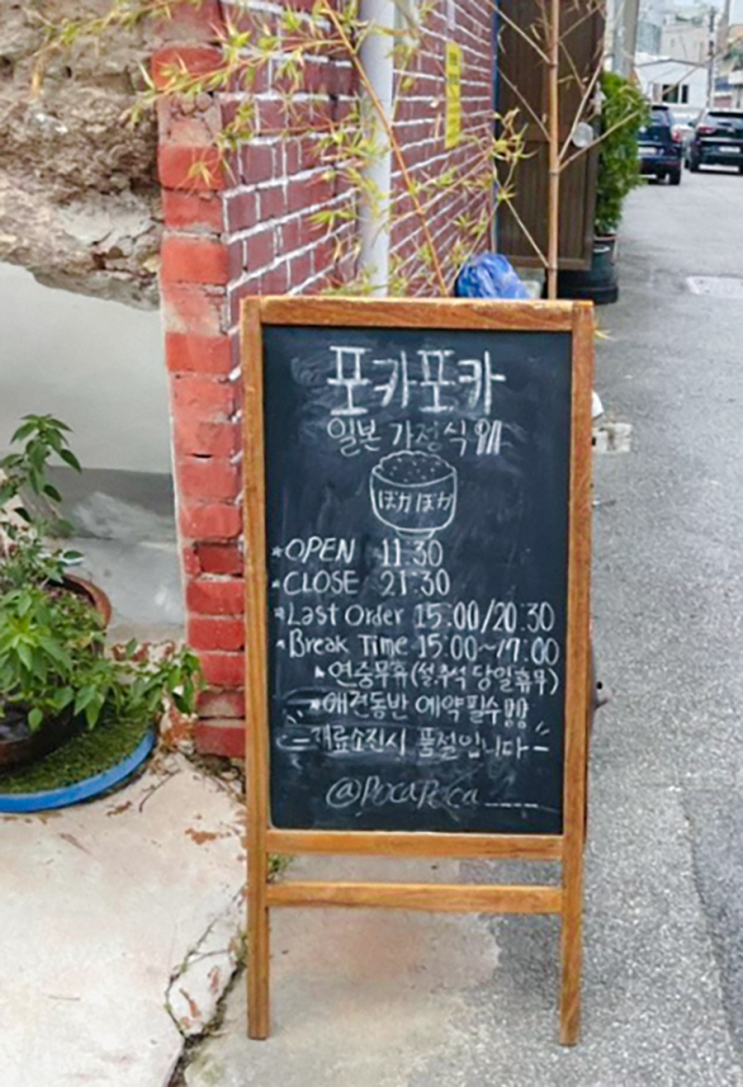 포카포카
일본 가정식
ぽかぽか
*OPEN 11:30
*CLOSE 21:30
*Last Order 15:00/20:30
*Break Time 15:00~17:00
*연중무휴(설,추석 당일휴무)
*애견동반 예약필수!!
재료소진시 품절입니다-
@PocaPoca____